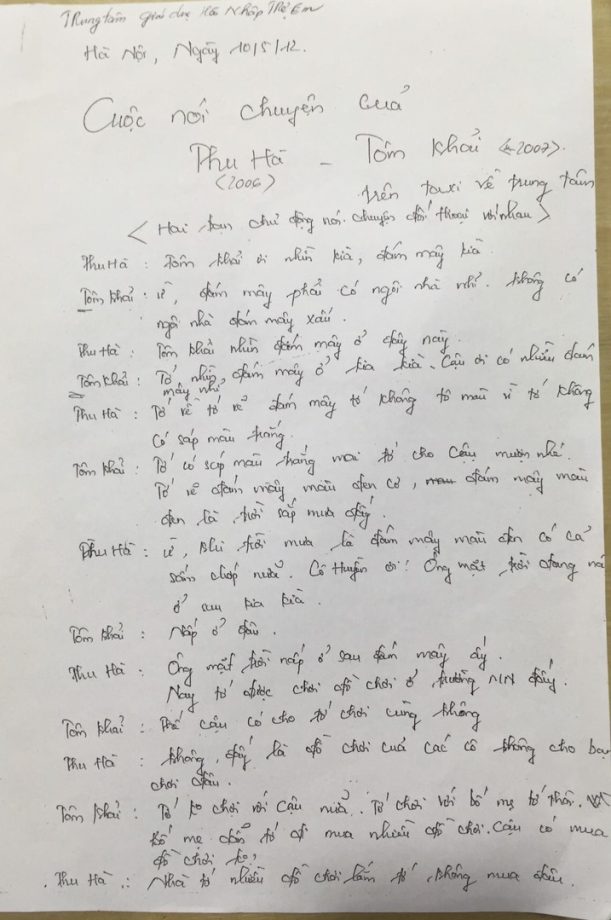 Trung tâm giáo dục Hòa Nhập Trẻ Em
Hà Nội, Ngày 10/5/12.
Cuộc nói chuyện của
Phu Hà - Tôm Khải <2007>.
<2006>
trên taxi về trung tâm
< Hai bạn chủ động nói chuyện đối thoại với nhau >
Phu Hà : Tôm Khải ơi nhìn kìa, đám mây kìa
Tôm Khải : ừ, đám mây phải có ngôi nhà nhỉ. không có
ngôi nhà đám mây xấu.
Phu Hà : Tôm Khải nhìn đám mây ở đây này.
Tôm Khải : Tớ nhìn đám mây ở kia kìa. Cậu ơi có nhiều đám
mây nhỉ
Phu Hà : Tớ vẽ tớ vẽ đám mây tớ không tô màu vì tớ không
Có sáp màu trắng.
Tôm Khải : Tớ có sáp màu trắng mai tớ cho Cậu mượn nhé.
Tớ vẽ đám mây màu đen cơ, đám mây màu
đen là trời sắp mưa đấy.
Phu Hà : ừ, khi trời mưa là đám mây màu đen có cả
sấm chớp nữa. Cô Huyền ơi! Ông mặt trời đang
ở sau kia kìa.
Tôm Khải : Nấp ở đâu.
Phu Hà : Ông mặt trời nấp ở sau đám mây ấy.
Nay tớ được chơi đồ chơi ở trường MN đấy.
Tôm Khải : Thế cậu có cho tớ chơi cùng không
Phu Hà : không, đấy là đồ chơi của các cô không cho bạn
chơi đâu.
Tôm Khải : Tớ ko chơi với cậu nữa. Tớ chơi với bố mẹ tớ thôi.
bố mẹ dẫn tớ đi mua nhiều đồ chơi. Cậu có mua
đồ chơi ko?
Phu Hà : Nhà tớ nhiều đồ chơi lắm tớ không mua đâu.